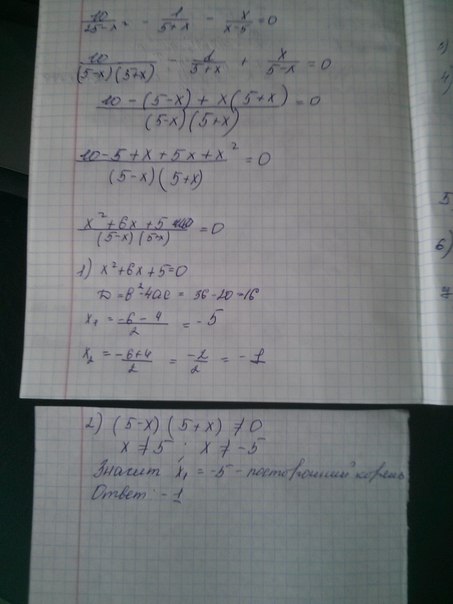 10/(25-x²) - 1/(5+x) - x/(x-5) = 0
10/((5-x)(5+x)) - 1/(5+x) + x/(5-x) = 0
(10-(5-x)+x(5+x))/((5-x)(5+x)) = 0
(10-5+x+5x+x²)/((5-x)(5+x)) = 0
(x²+6x+5)/((5-x)(5+x)) = 0
1) x²+6x+5=0
D=b²-4ac = 36-20=16
x₁ = (-6-4)/2 = -5
x₂ = (-6+4)/2 = -2/2 = -1
2) (5-x)(5+x) ≠ 0
x ≠ 5 ; x ≠ -5
Значит x₁ = -5 - посторонний корень
Ответ: -1
1)
4)
5
6)
7